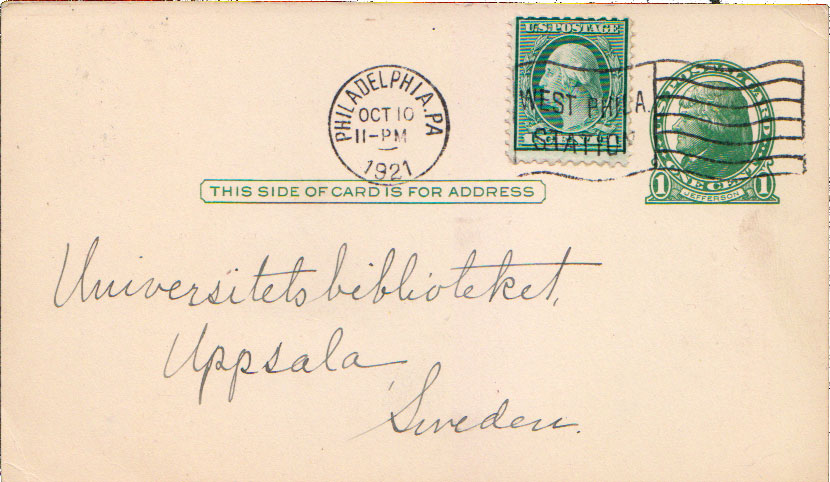 U.S. POSTAGE
PHILADELPHIA, PA
OCT 10
11-PM
1921
WEST PHILA.
STATION
1 JEFFERSON 1
THIS SIDE OF CARD IS FOR ADDRESS
Universitetsbiblioteket,
Uppsala
Sweden.